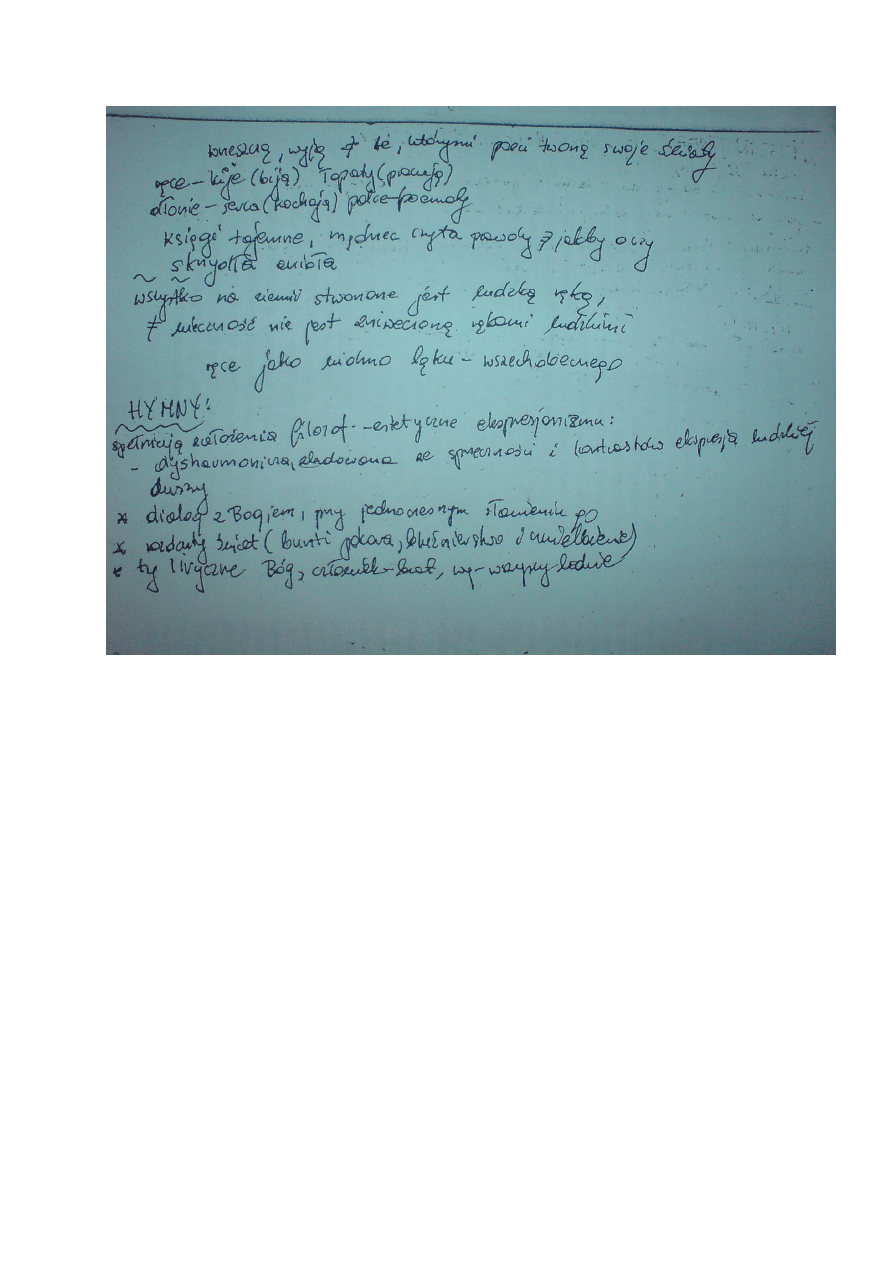 wrzeszczą, wyją ≠ te, którymi poeci tworzą swoje światy
ręce – kije (biją) łopaty (pracują)
dłonie – serca (kochają) palce-poematy
księgi tajemne, mędrzec czyta prawdy ≠ jakby oczy
skrzydła anioła
wszystko na ziemi stworzone jest ludzką ręką,
≠ wieczność nie jest zniweczoną rękami ludzkimi
ręce jako widmo lęku – wszechobecnego
HYMNY:
spełniają założenia filozof. -estetyczne ekspresjonizmu:
- dysharmoniczna, zbudowana ze sprzeczności i kontrastów ekspresja ludzkiej
duszy
* dialog z Bogiem, przy jednoczesnym sławieniu go
* rozdarty świat (bunt i pokora, bluźnierstwo i uwielbienie)
* ty liryczne Bóg, człowiek-brat, wy-wszyscy ludzie